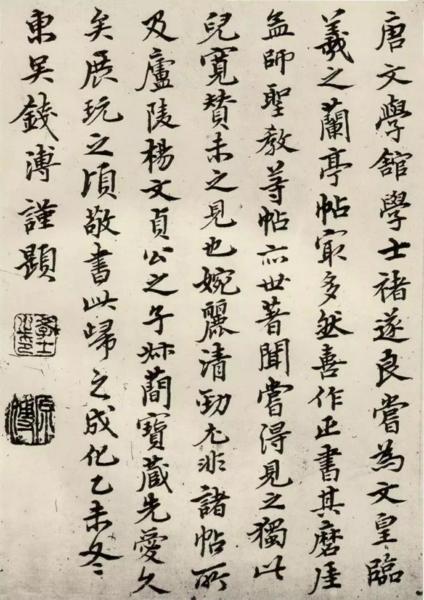 唐文學館學士褚遂良嘗為文皇臨
羲之蘭亭帖冣多然喜作正書其磨崖
孟師聖教等帖亦世著聞嘗得見之獨此
兒寬贊未之見也婉麗清勁尤非諸帖所
及廬陵楊文貞公之子叔蕑寶藏先愛久
矣展玩之頃敬書此歸之成化乙未冬
東吳錢溥謹題
原溥